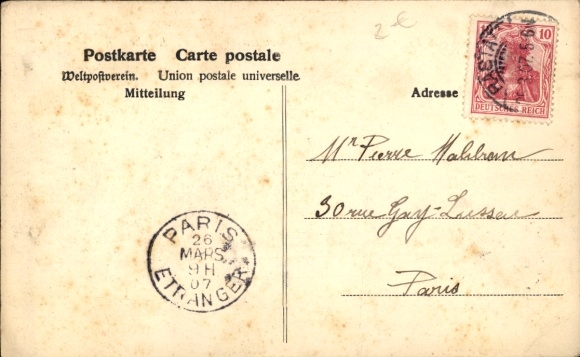 2 €
Postkarte Carte postale
Weltpostverein. Union postale universelle.
Mitteilung
Adresse
10
DEUTSCHES REICH
Mr Pierre Malibran
30 rue Gay-Lussac
Paris
PARIS
26
MARS
9 H
07
ETRANGER